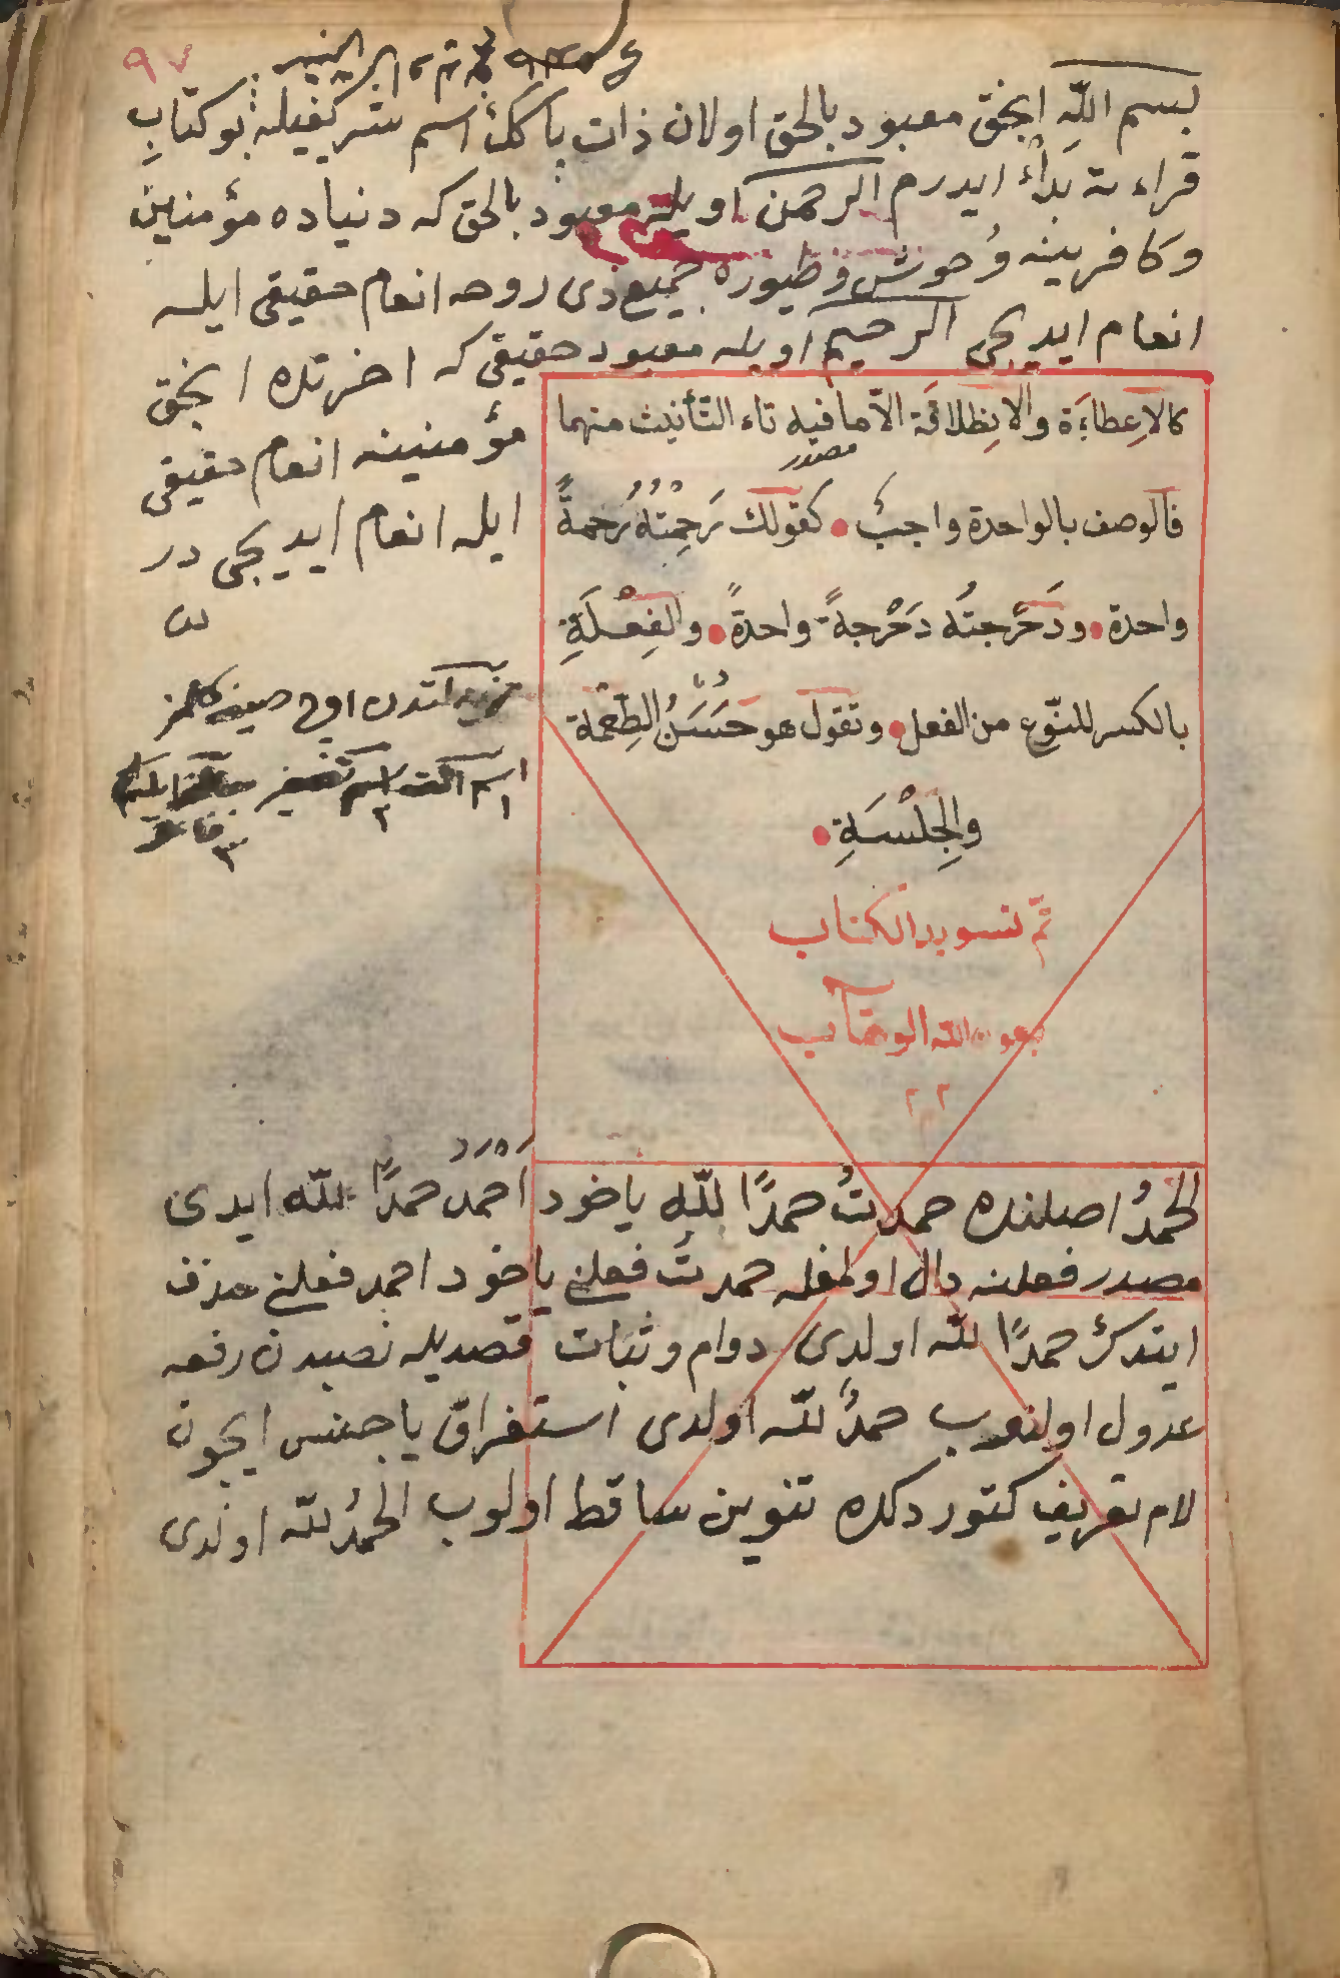 ٩٧
بسم اللّهِ انجق معبود بالحق اولان ذات پاكك اسم شريفيله بو كتابِ
قراءته بدأ ايدرم الرحمن اويله معبود بالحق كه دنياده مؤمنين
وكافرينه وُحوش وطيوره جميع ذى روحه انعام حقيقى ايله
انعام ايديجى الرحيم اويله معبود حقيقى كه اخرتده انجق
مؤمنينه انعام حقيقى
ايله انعام ايديجى در
كالاِعطاءَة والانِطلاقَة الاّ ما فيه تاء التّأنيث منهما
مصدر
فالوصف بالواحدة واجبٌ كقولك رَحِمْتُهُ رَحمةً
واحدة ودَحْرَجتُه دَحْرجةً واحدةً والفِعْلَةِ
بالكسر للنّوع من الفعل وتقول هو حَسَنُ الطِعْمَة
والجِلْسَةِ
تمّ تسويد الكتاب
بعون اللّه الوهّاب
الحمدُ اصلنده حمدتُ حمدًا للّه ياخود اَحْمَدُ حمدًا للّه ايدى
مصدر فعلنه دال اولمغله حمدتُ فعلنى ياخود احمد فعلنى حذف
ايتدك حمدًا للّه اولدى دوام وثبات قصديله نصبدن رفعه
عدول اولنوب حمدٌ للّه اولدى استغراق يا جنس ايچون
لام تعريف كتوردكده تنوين ساقط اولوب الحمدُ للّه اولدى